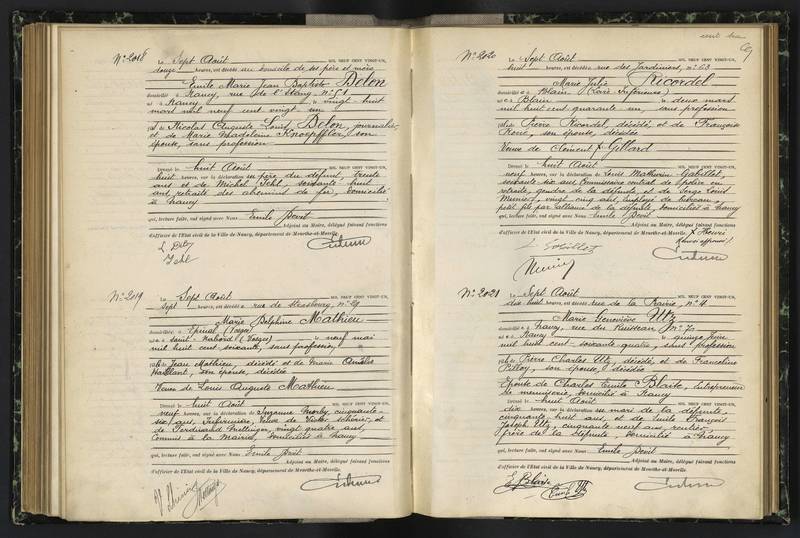 N° 2018
Le Sept Août MIL NEUF CENT VINGT-UN,
douze heures, est décédé au domicile de ses père et mère
Emile Marie Jean Baptiste Delon
domicilié à Nancy, rue de l'Etang, n° 51
né à Nancy, le vingt huit
mars mil neuf cent vingt un
fils de Nicolas Auguste Louis Delon, journalier,
et de Marie Madeleine Knoepffler, son
épouse, sans profession
Dressé le huit Août MIL NEUF CENT VINGT-UN,
huit heures, sur la déclaration du père du défunt, trente
ans et de Michel Tehl, soixante huit
ans, retraité des chemins de fer, domiciliés
à Nancy
qui, lecture faite, ont signé avec Nous Emile Devit
Adjoint au Maire, délégué faisant fonctions
d'officier de l'Etat civil de la Ville de Nancy, département de Meurthe-et-Moselle.
Tehl
N° 2019
Le Sept Août MIL NEUF CENT VINGT-UN,
sept heures, est décédée rue de Strasbourg, n° 29
Marie Delphine Mathieu
domiciliée à Epinal (Vosges)
née à Saint-Nabord (Vosges) le neuf mai
mil huit cent soixante, sans profession,
fille de Jean Mathieu, décédé et de Marie Amélie
son épouse, décédée
Veuve de Louis Auguste Mathieu
Dressé le huit Août MIL NEUF CENT VINGT-UN,
neuf heures, sur la déclaration de Suzanne cinquante-
six ans, Infirmière, Veuve de Victor et
de Ferdinand vingt quatre ans,
Commis à la Mairie, domiciliés à Nancy
qui, lecture faite, ont signé avec Nous Emile Devit
Adjoint au Maire, délégué faisant fonctions
d'officier de l'Etat civil de la Ville de Nancy, département de Meurthe-et-Moselle.
N° 2020
Le Sept Août MIL NEUF CENT VINGT-UN,
huit heures, est décédée rue des Jardiniers, n° 63
Marie Julie Ricordel
domiciliée à Blain (Loire Inférieure)
née à Blain le deux mars
mil huit cent quarante un, sans profession
fille de Pierre Ricordel, décédé, et de Françoise
son épouse, décédée
Veuve de Clément Gillard
Dressé le huit Août MIL NEUF CENT VINGT-UN,
neuf heures, sur la déclaration de Louis Mathurin Gabillot,
soixante six ans Commissaire central de Police en
retraite, gendre de la défunte et de Serge Louis
Munier, vingt cinq ans, employé de bureau,
petit fils par alliance de la défunte, domiciliés à Nancy
qui, lecture faite, ont signé avec Nous Emile Devit
Adjoint au Maire, délégué faisant fonctions
d'officier de l'Etat civil de la Ville de Nancy, département de Meurthe-et-Moselle.
N° 2021
Le Sept Août MIL NEUF CENT VINGT-UN,
dix huit heures, est décédée rue de la Prairie, n° 4
Marie Geneviève Utz
domiciliée à Nancy, rue du Ruisseau,
née à Nancy le quinze Juin
mil huit cent soixante quatre, sans profession
fille de Pierre Charles Utz, décédé, et de Françoline
son épouse, décédée
Epouse de Charles Emile Blaise, Entrepreneur
de menuiserie, domicilié à Nancy
Dressé le huit Août MIL NEUF CENT VINGT-UN,
dix heures, sur la déclaration du mari de la défunte,
cinquante huit ans, et de Emile François
Joseph Utz, cinquante neuf ans, rentier,
frère de la défunte, domicilié à Nancy
qui, lecture faite, ont signé avec Nous Emile Devit
Adjoint au Maire, délégué faisant fonctions
d'officier de l'Etat civil de la Ville de Nancy, département de Meurthe-et-Moselle.
E. Blaise